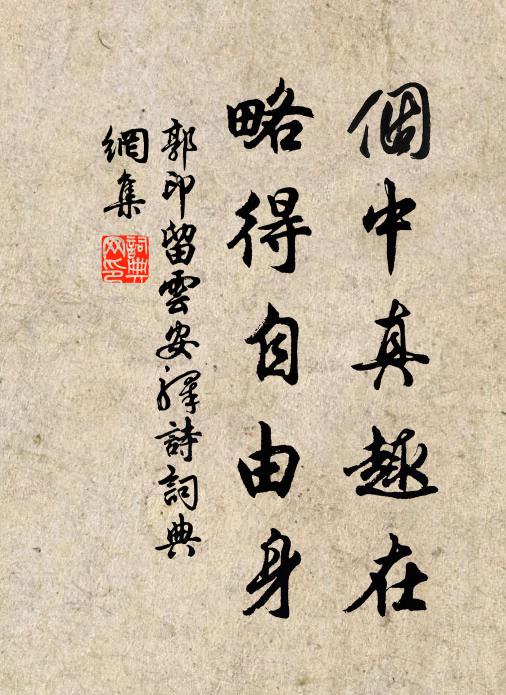 個中真趣在
略得自由身
郭印留雲安驛詩詞典
網集
詞典網印